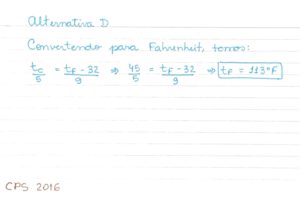 Alternativa D
Convertendo para Fahrenheit, temos:
tc/5 = tF - 32/9 ⇒ 45/5 = tF - 32/9 ⇒ tF = 113°F
CPS 2016